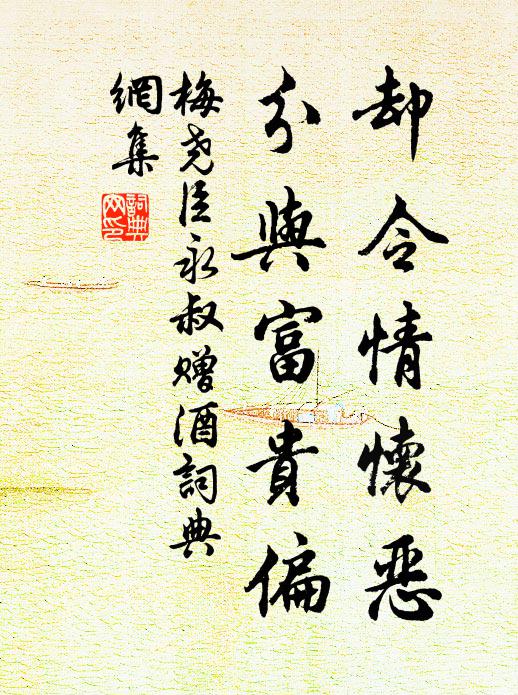 却令情懷惡
分與富貴偏
梅尧臣永叔赠酒詞典
網集
詞典
网印